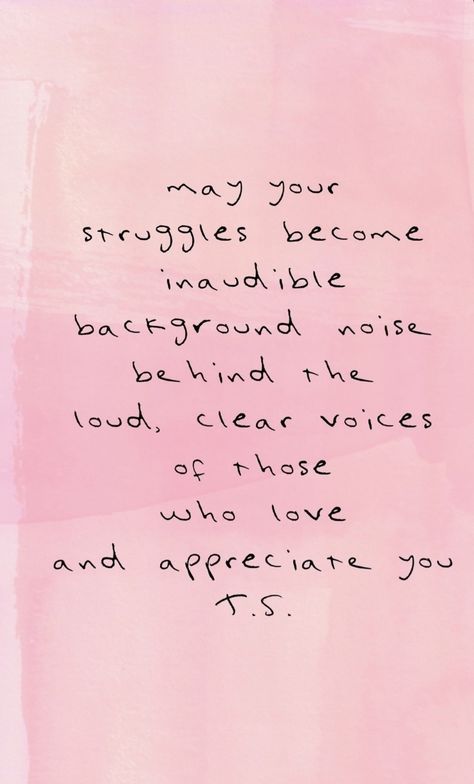 may your
struggles become
inaudible
background noise
behind the
loud, clear voices
of those
who love
and appreciate you
T.S.